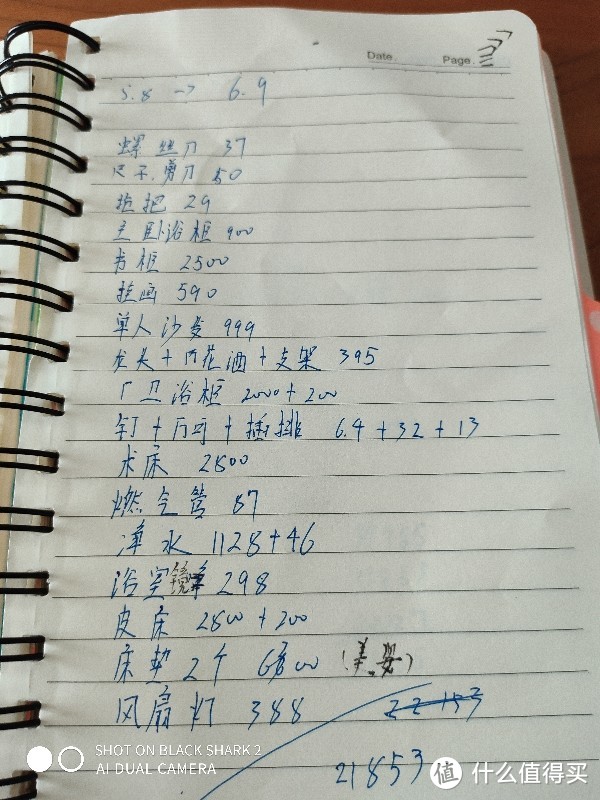 Date. Page.
5.8 → 6.9
螺丝刀 37
尺子、剪刀 50
拖把 29
主卧浴柜 900
书柜 2500
挂画 590
单人沙发 999
龙头+内花洒+支架 395
厂卫浴柜 2000+200
钉+阀+插排 6.4+32+13
木床 2800
燃气管 87
净水 1128+46
浴室镜 298
皮床 2800+200
床垫2个 6800 (美
风扇灯 388 22153
21853
SHOT ON BLACK SHARK 2
AI DUAL CAMERA
值 什么值得买